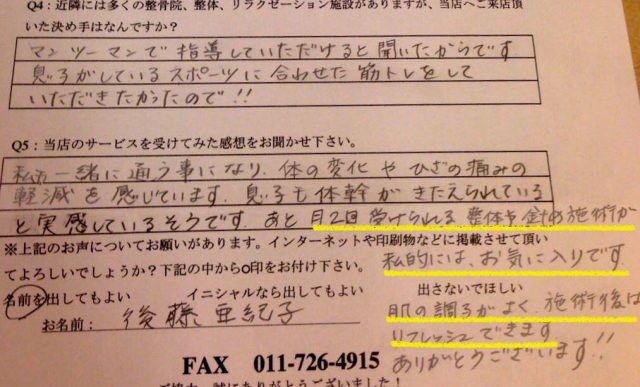 Q4：近隣には多くの整骨院、整体、リラクゼーション施設がありますが、当店へご来店頂
いた決め手はなんですか？
マンツーマンで指導していただけると聞いたからです
息子がしているスポーツに合わせた筋トレをして
いただきたかったので!!
Q5：当店のサービスを受けてみた感想をお聞かせ下さい。
私も一緒に通う事になり、体の変化やひざの痛みの
軽減を感じています。息子も体幹がきたえられている
と実感しているそうです。あと月2回受けられる整体や針の施術が
私的には、お気に入りです
肌の調子がよく、施術後は
リフレッシュできます
ありがとうございます!!
※上記のお声についてお願いがあります。インターネットや印刷物などに掲載させて頂い
てよろしいでしょうか？下記の中からo印をお付け下さい。
名前を出してもよい イニシャルなら出してもよい 出さないでほしい
お名前： 後藤 亜紀子
FAX 011-726-4915
ご協力、誠にありがとうございました！